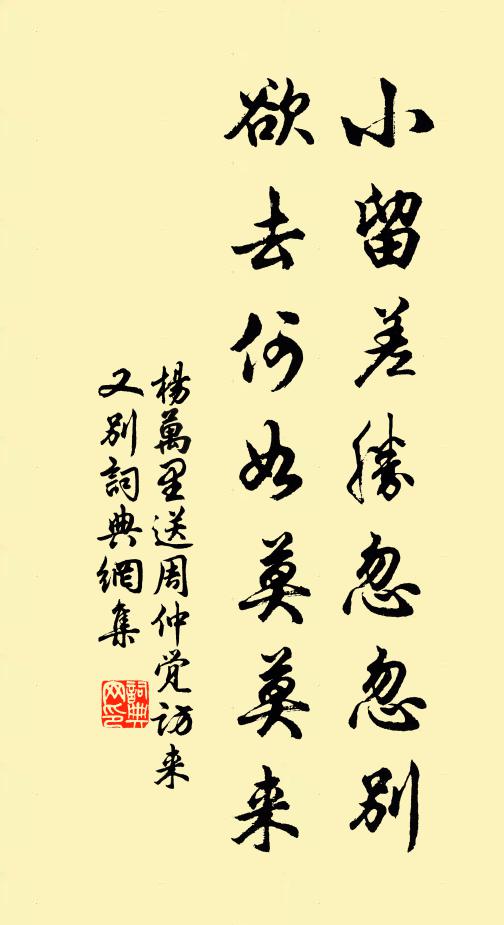 小留差勝忽忽别
欲去何如莫莫来
楊萬里送周仲觉訪来
又别詞典網集
詞典网印